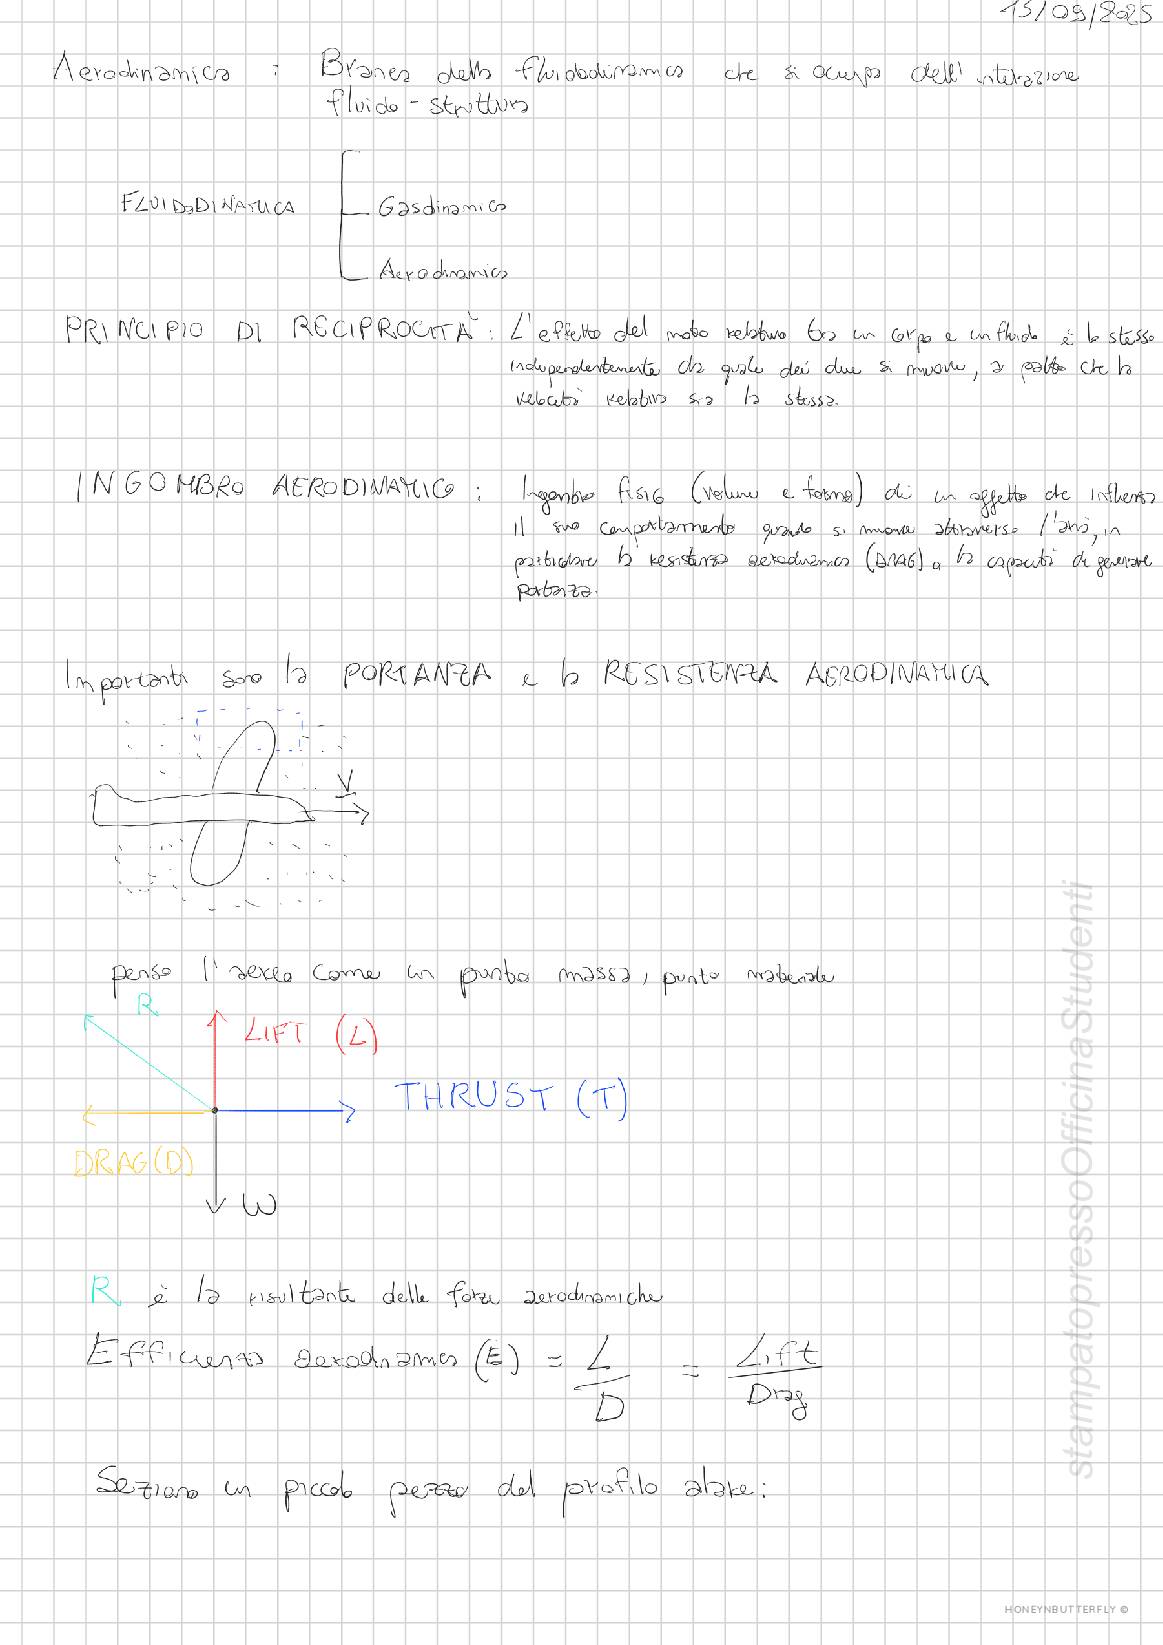 15/09/2025
Aerodinamica : Branca della fluidodinamica che si occupa dell'interazione
fluido-struttura
FLUIDODINAMICA
Gasdinamica
Aerodinamica
PRINCIPIO DI RECIPROCITÀ : L'effetto del moto relativo tra un corpo e un fluido è lo stesso
indipendentemente da quale dei due si muove, a patto che la
velocità relativa sia la stessa.
INGOMBRO AERODINAMICO : Ingombro fisico (volume e forma) di un oggetto che influenza
il suo comportamento quando si muove attraverso l'aria, in
particolare la resistenza aerodinamica (DRAG) e la capacità di generare
portanza.
Importanti sono la PORTANZA e la RESISTENZA AERODINAMICA
V
penso l'aereo come un punto massa, punto materiale
R
LIFT (L)
THRUST (T)
DRAG (D)
W
R è la risultante delle forze aerodinamiche
Efficienza aerodinamica (E) = L / D = Lift / Drag
Seziono un piccolo pezzo del profilo alare:
stampatopressoOfficinaStudenti
HONEYNBUTTERFLY ©